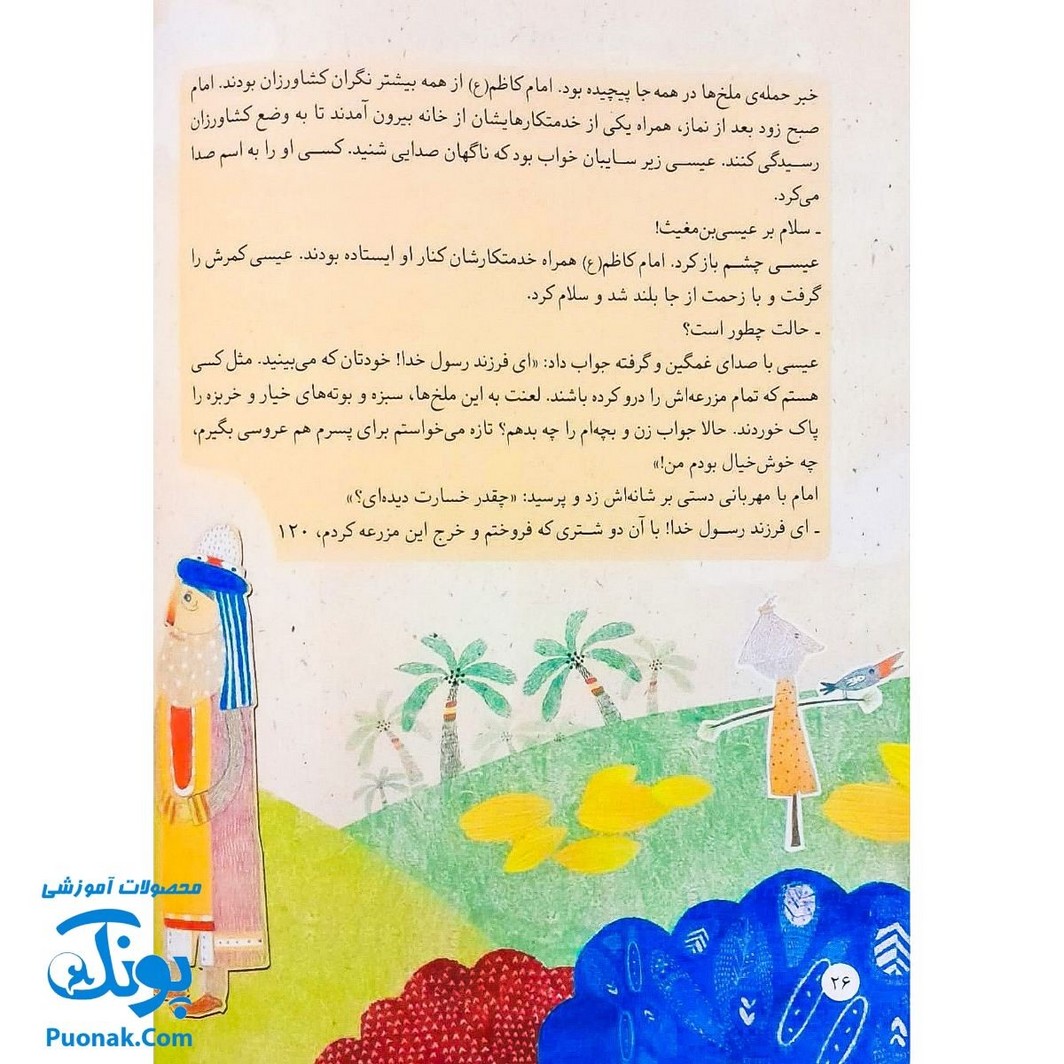 خبر حمله‌ی ملخ‌ها در همه جا پیچیده بود. امام کاظم(ع) از همه بیشتر نگران کشاورزان بودند. امام
صبح زود بعد از نماز، همراه یکی از خدمتکارهایشان از خانه بیرون آمدند تا به وضع کشاورزان
رسیدگی کنند. عیسی زیر سایبان خواب بود که ناگهان صدایی شنید. کسی او را به اسم صدا
می‌کرد.
ـ سلام بر عیسی‌بن‌مغیث!
عیسی چشم باز کرد. امام کاظم(ع) همراه خدمتکارشان کنار او ایستاده بودند. عیسی کمرش را
گرفت و با زحمت از جا بلند شد و سلام کرد.
ـ حالت چطور است؟
عیسی با صدای غمگین و گرفته جواب داد: «ای فرزند رسول خدا! خودتان که می‌بینید. مثل کسی
هستم که تمام مزرعه‌اش را درو کرده باشند. لعنت به این ملخ‌ها، سبزه و بوته‌های خیار و خربزه را
پاک خوردند. حالا جواب زن و بچه‌ام را چه بدهم؟ تازه می‌خواستم برای پسرم هم عروسی بگیرم،
چه خوش‌خیال بودم من!»
امام با مهربانی دستی بر شانه‌اش زد و پرسید: «چقدر خسارت دیده‌ای؟»
ـ ای فرزند رسول خدا! با آن دو شتری که فروختم و خرج این مزرعه کردم، ۱۲۰
۲۶
محصولات آموزشی
پونک
Puonak.Com